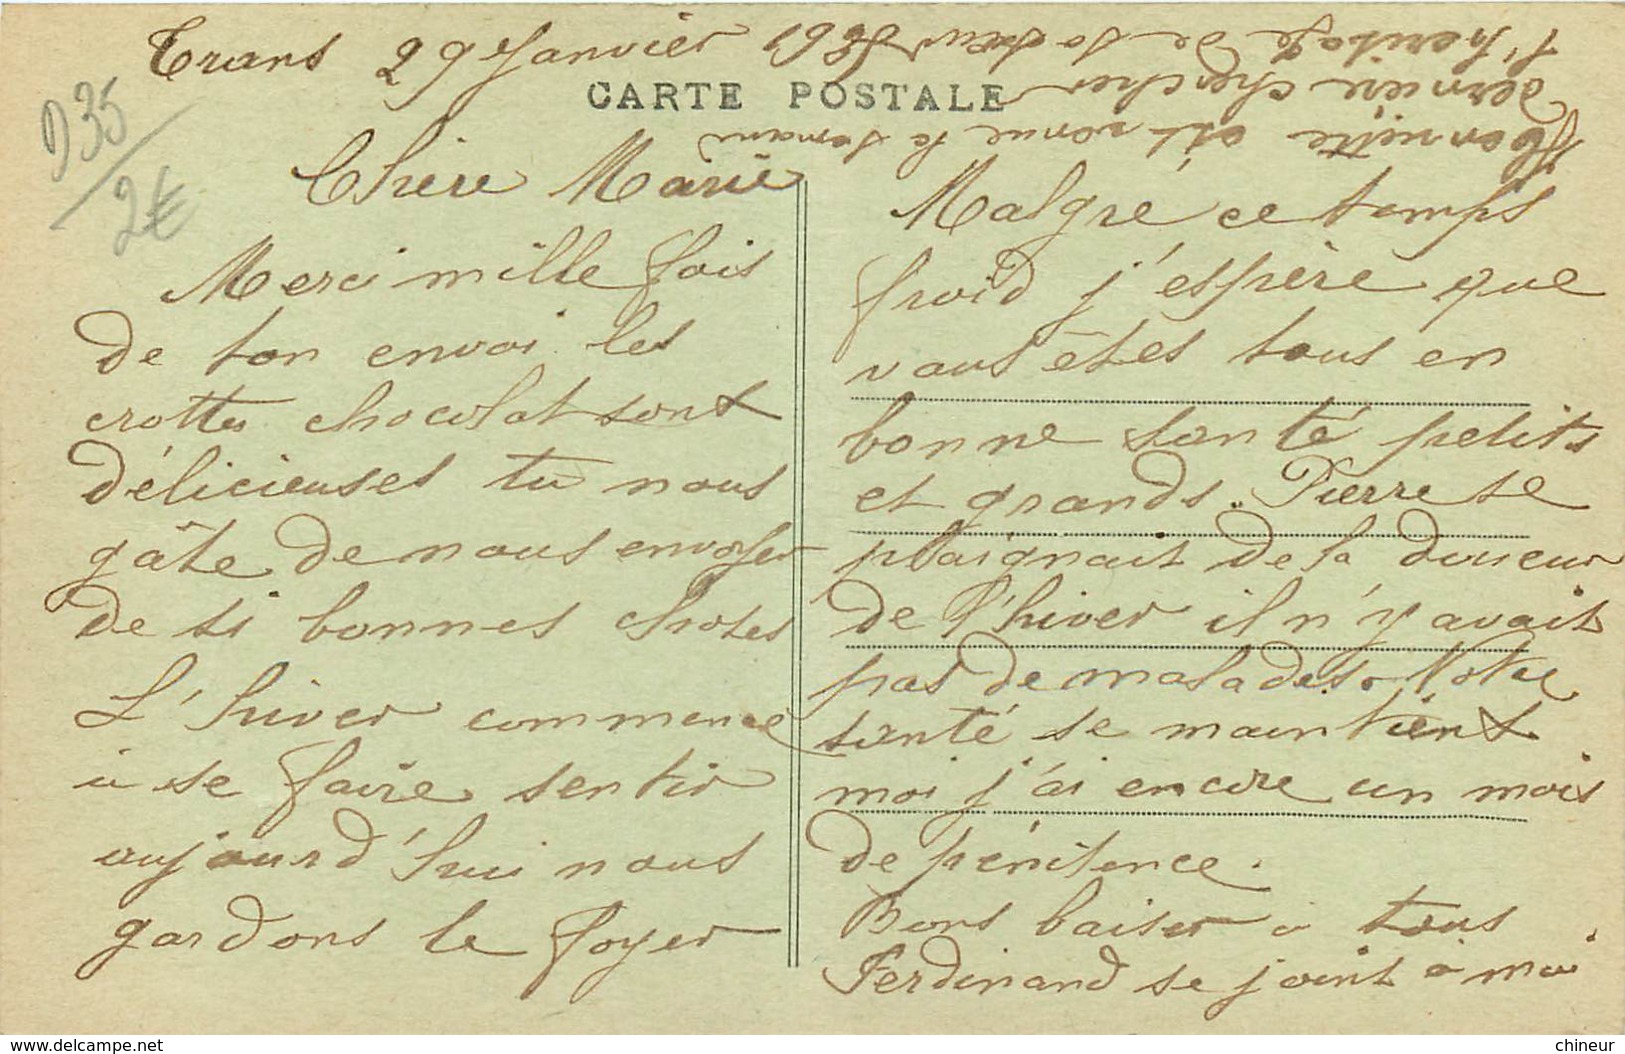 Trans 29 Janvier
CARTE POSTALE
D35
2€
Chère Marie
Merci mille fois
de ton envoi les
crottes chocolat sont
délicieuses tu nous
gâte de nous envoyer
de si bonnes choses
L'hiver commence
à se faire sentir
aujourd'hui nous
gardons le foyer
Malgré ce temps
froid j'espère que
vous êtes tous en
bonne santé petits
et grands. Pierre se
plaignait de la douceur
de l'hiver il n'y avait
pas de malades. Notre
santé se maintient
moi j'ai encore un mois
de pénitence.
Bons baiser à tous
Ferdinand se joint à moi
est venue la semaine
dernière chercher
l'héritage de sa sœur
www.delcampe.net
chineur